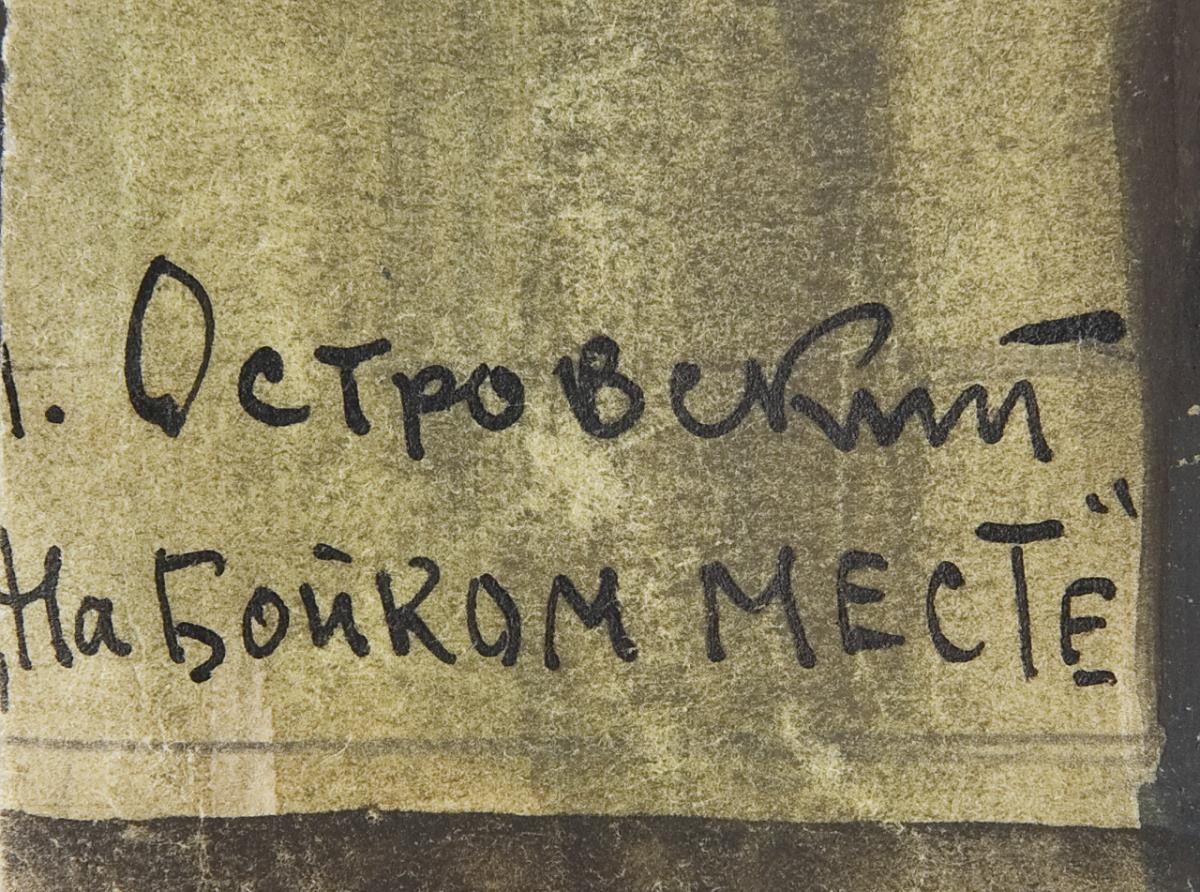 . Островский
„На Бойком месте"